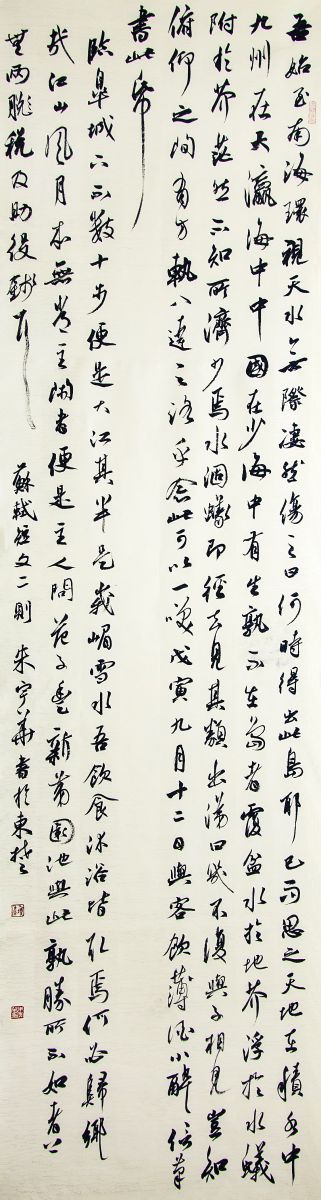 吾始至南海環視天水無際淒然傷之曰何時得出此島耶已而思之天地在積水中
九州在大瀛海中中國在少海中有生孰不在島者覆盆水於地芥浮於水蟻
附於芥茫然不知所濟少焉水涸蟻即徑去見其類出涕曰幾不復與子相見豈知
俯仰之間有方軌八達之路乎念此可以一笑戊寅九月十二日與客飲薄酒小醉信筆
書此紙
臨皋城下不數十步便是大江其半是峨嵋雪水吾飲食沐浴皆取焉何必歸鄉
哉江山風月本無常主閑者便是主人問范子豐新第園池與此孰勝所不如者上
無兩脫稅及助役錢耳
蘇軾短文二則 朱宇華書於東楚